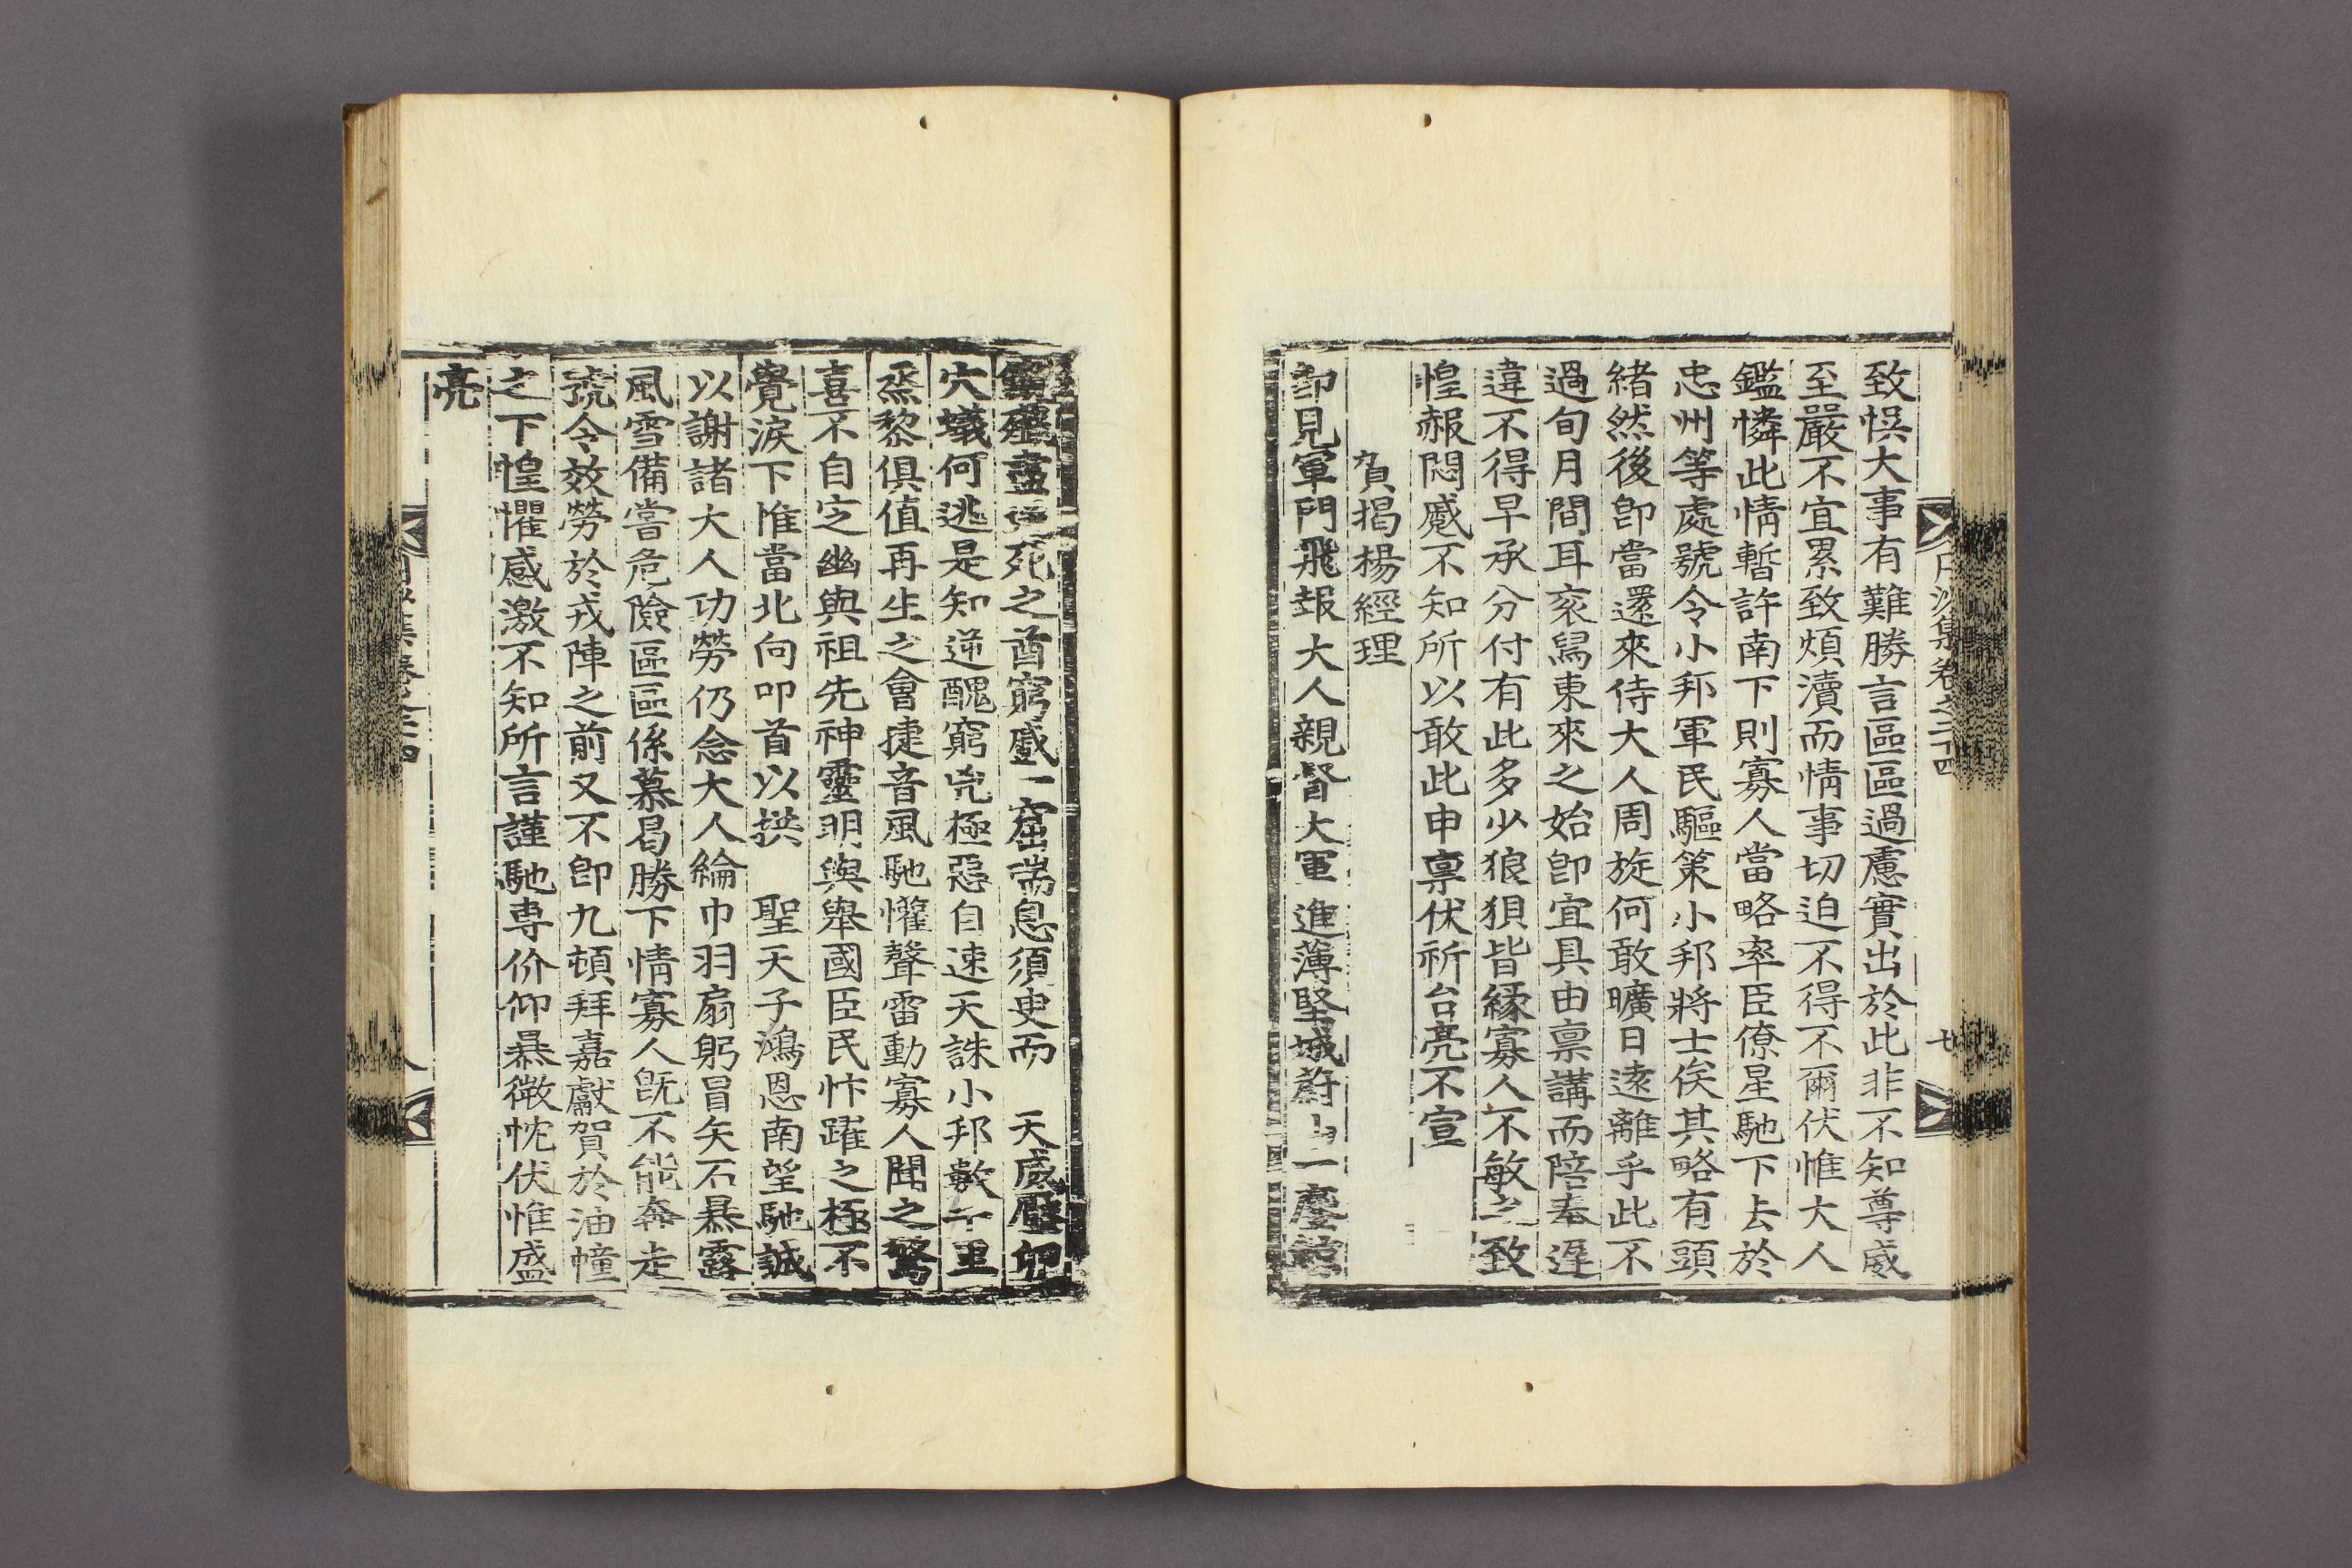 致悞大事有難勝言區區過慮實出於此非不知尊威
至嚴不宜累致煩瀆而情事切迫不得不爾伏惟大人
鑑憐此情暫許南下則寡人當略率臣僚星馳下去於
忠州等處號令小邦軍民驅策小邦將士俟其略有頭
緒然後卽當還來侍大人周旋何敢曠日遠離乎此不
過旬月間耳袞舃東來之始卽宜具由稟講而陪奉遅
違不得早承分付有此多少狼狽皆縁寡人不敏之致
惶赧悶蹙不知所以敢此申稟伏祈台亮不宣
賀揭楊經理
卽見軍門飛報大人親督大軍進薄堅城蔚山一
殲盡死之酋窮蹙一窟喘息須臾而 天威壓卵
穴蟻何逃是知逆醜窮兇極惡自速天誅小邦數千里
烝黎俱值再生之會捷音風馳懽聲雷動寡人聞之驚
喜不自定幽與祖先神靈明與舉國臣民忭躍之極不
覺淚下惟當北向叩首以拱 聖天子鴻恩南望馳誠
以謝諸大人功勞仍念大人綸巾羽扇躬冒矢石暴露
風雪備嘗危險區區係慕曷勝下情寡人旣不能奔走
號令效勞於戎陣之前又不卽九頓拜嘉獻賀於油幢
之下惶懼感激不知所言謹馳専价仰暴微忱伏惟盛
亮